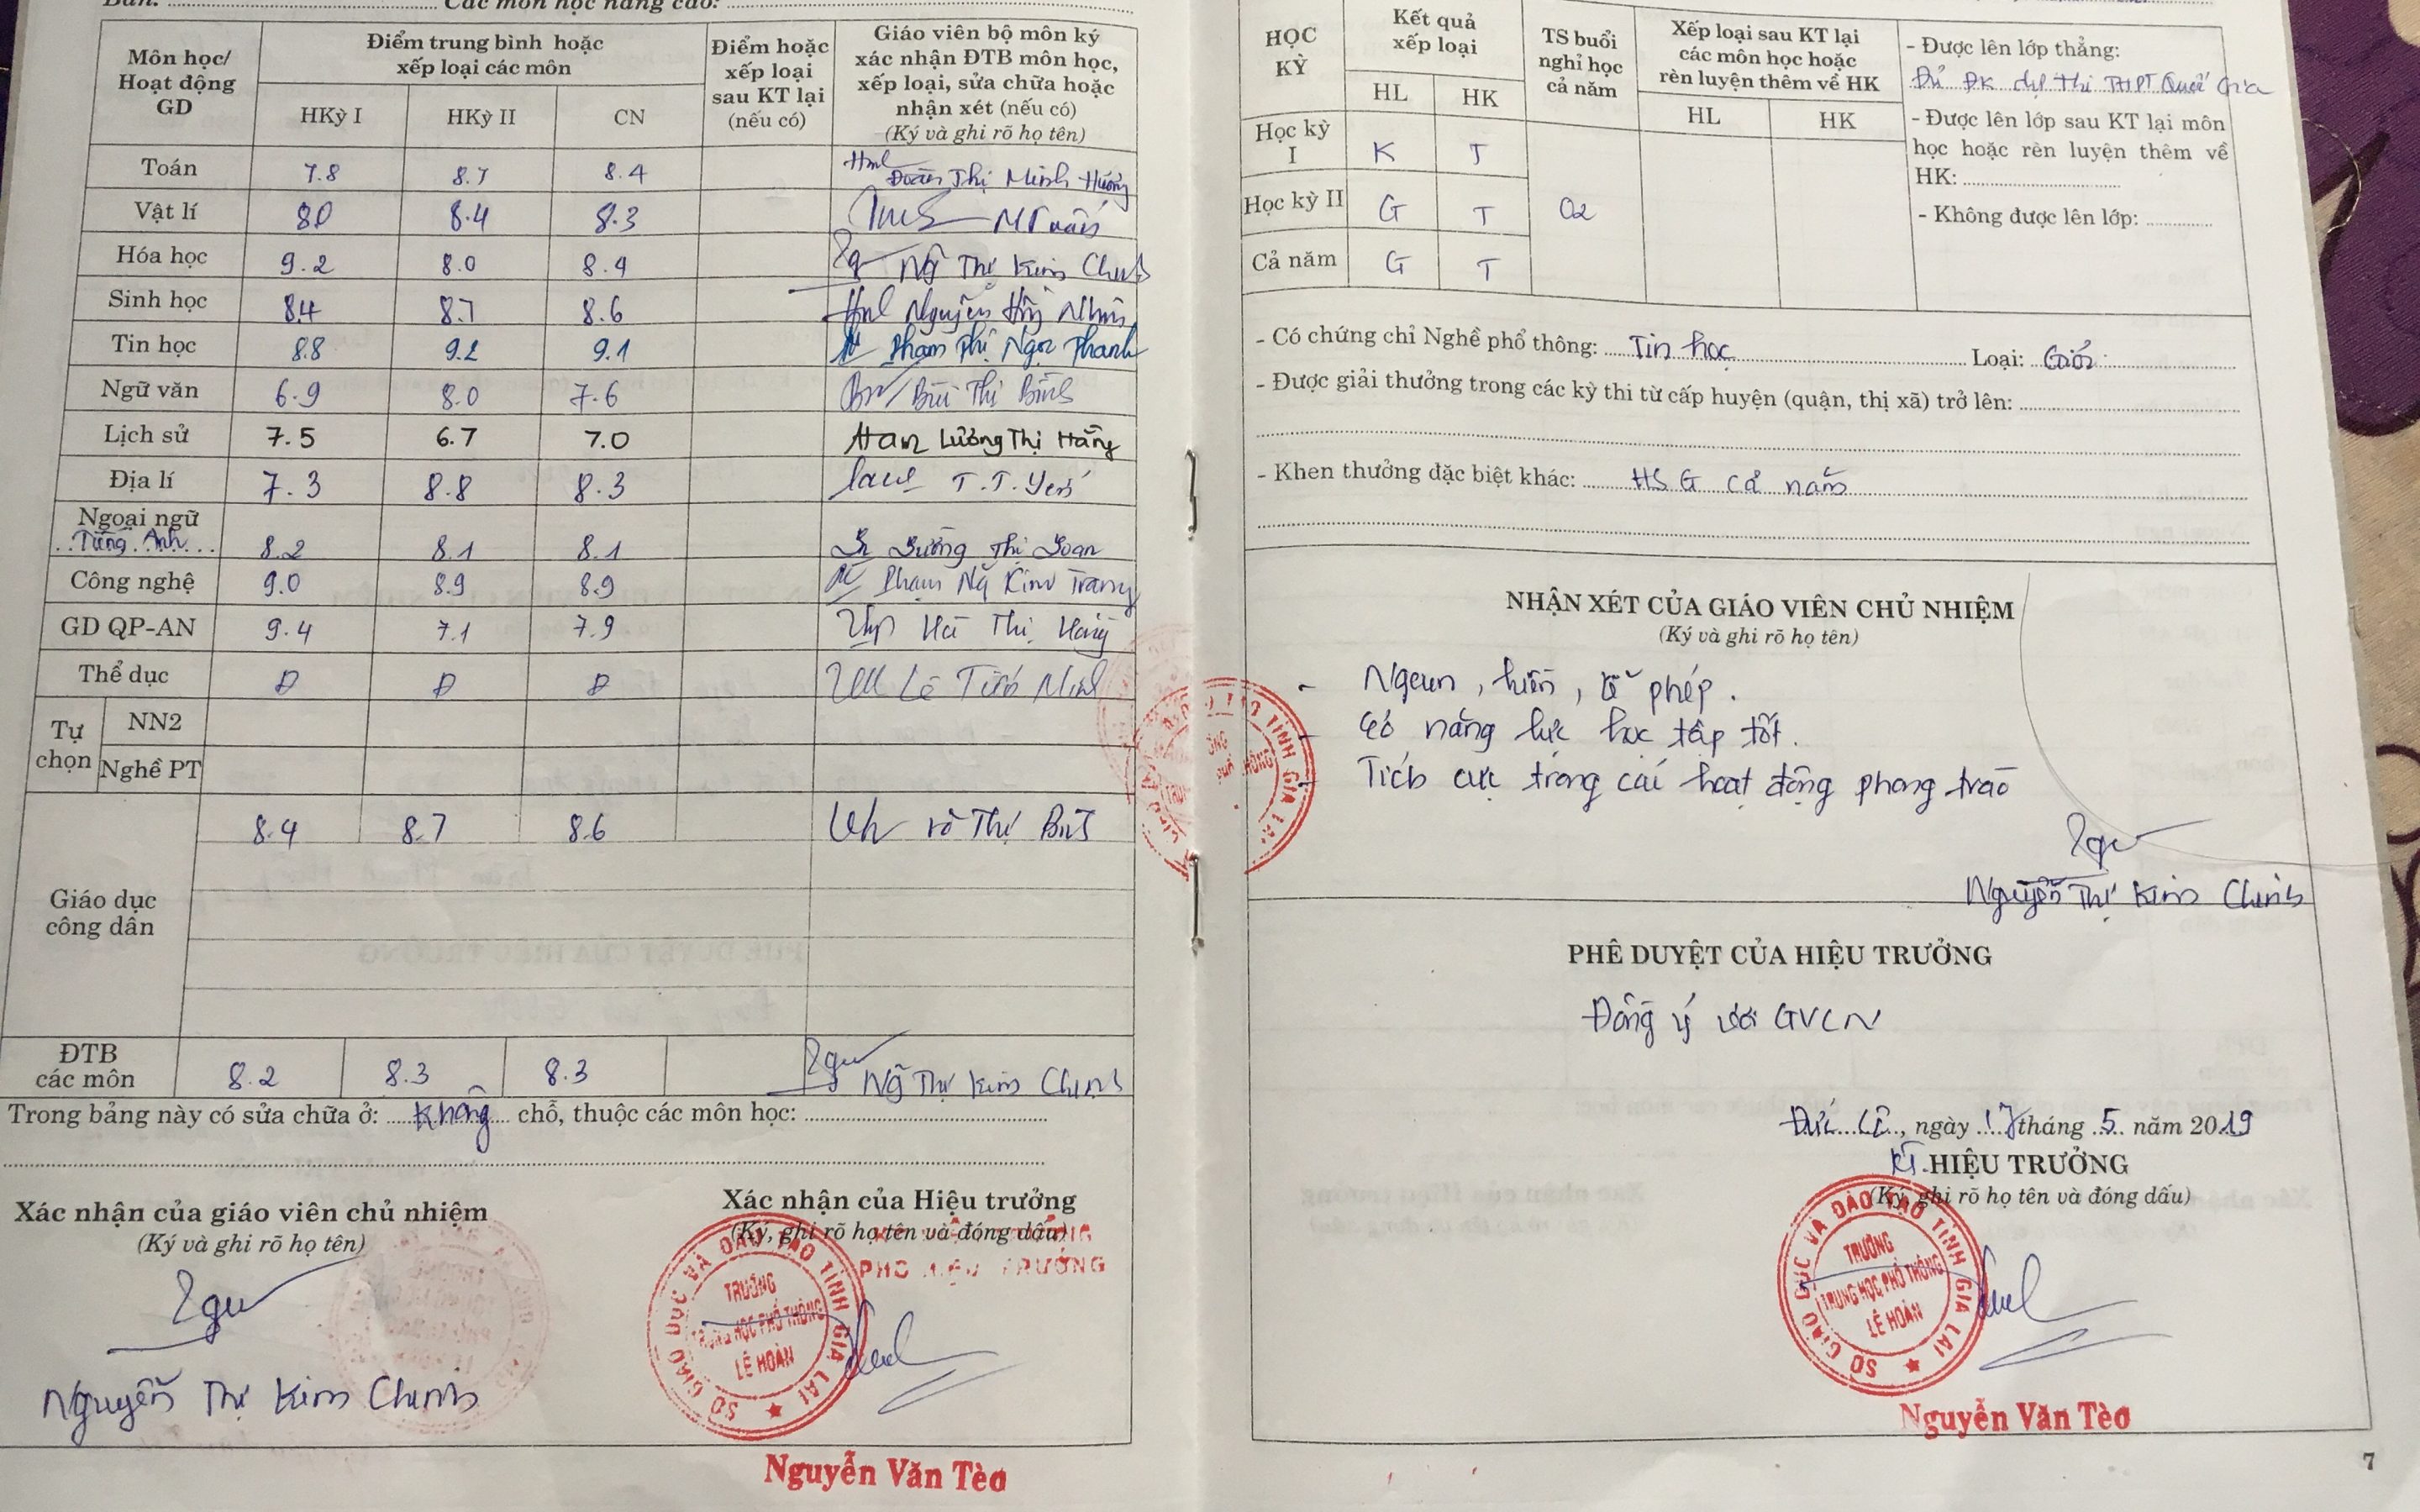 Ban: ........ Các môn học nâng cao: ........
Môn học/ Hoạt động GD | Điểm trung bình hoặc xếp loại các môn | Điểm hoặc xếp loại sau KT lại (nếu có) | Giáo viên bộ môn ký xác nhận ĐTB môn học, xếp loại, sửa chữa hoặc nhận xét (nếu có) (Ký và ghi rõ họ tên)
HKỳ I | HKỳ II | CN
Toán 7.8 8.7 8.4 Đoàn Thị Minh Hường
Vật lí 8.0 8.4 8.3
Hóa học 9.2 8.0 8.4 Ng Thị Kim Chinh
Sinh học 8.4 8.7 8.6 Nguyễn
Tin học 8.8 9.2 9.1 Phạm Thị Ngọc Thanh
Ngữ văn 6.9 8.0 7.6 Bùi Thị Bình
Lịch sử 7.5 6.7 7.0 Lương Thị Hằng
Địa lí 7.3 8.8 8.3 T.T. Yến
Ngoại ngữ
Tiếng Anh 8.2 8.1 8.1 Dương Thị Loan
Công nghệ 9.0 8.9 8.9 Phạm Ng Kim Trang
GD QP-AN 9.4 7.1 7.9 Hà Thị Hồng
Thể dục Đ Đ Đ Lê
Tự chọn NN2
Nghề PT
8.4 8.7 8.6 Võ Thị
Giáo dục công dân
ĐTB các môn 8.2 8.3 8.3 Ng Thị Kim Chinh
Trong bảng này có sửa chữa ở: Không chỗ, thuộc các môn học: ........
Xác nhận của giáo viên chủ nhiệm
(Ký và ghi rõ họ tên)
Nguyễn Thị Kim Chinh
Xác nhận của Hiệu trưởng
(Ký, ghi rõ họ tên và đóng dấu)
PHÓ HIỆU TRƯỞNG
SỞ GIÁO DỤC VÀ ĐÀO TẠO TỈNH GIA LAI
TRƯỜNG
TRUNG HỌC PHỔ THÔNG
LÊ HOÀN
Nguyễn Văn Tèo
HỌC KỲ | Kết quả xếp loại | TS buổi nghỉ học cả năm | Xếp loại sau KT lại các môn học hoặc rèn luyện thêm về HK
HL | HK | HL | HK
Học kỳ I K T
Học kỳ II G T 02
Cả năm G T
- Được lên lớp thẳng:
Đủ ĐK dự thi THPT Quốc Gia
- Được lên lớp sau KT lại môn
học hoặc rèn luyện thêm về
HK: ........
- Không được lên lớp: ........
- Có chứng chỉ Nghề phổ thông: Tin học Loại: Giỏi
- Được giải thưởng trong các kỳ thi từ cấp huyện (quận, thị xã) trở lên: ........
- Khen thưởng đặc biệt khác: HSG cả năm
NHẬN XÉT CỦA GIÁO VIÊN CHỦ NHIỆM
(Ký và ghi rõ họ tên)
- Ngoan, hiền, lễ phép.
- Có năng lực học tập tốt.
- Tích cực trong các hoạt động phong trào
Nguyễn Thị Kim Chinh
PHÊ DUYỆT CỦA HIỆU TRƯỞNG
Đồng ý với GVCN
Đức Cơ, ngày 17 tháng 5 năm 2019
KT. HIỆU TRƯỞNG
(Ký, ghi rõ họ tên và đóng dấu)
SỞ GIÁO DỤC VÀ ĐÀO TẠO TỈNH GIA LAI
TRƯỜNG
TRUNG HỌC PHỔ THÔNG
LÊ HOÀN
Nguyễn Văn Tèo
7